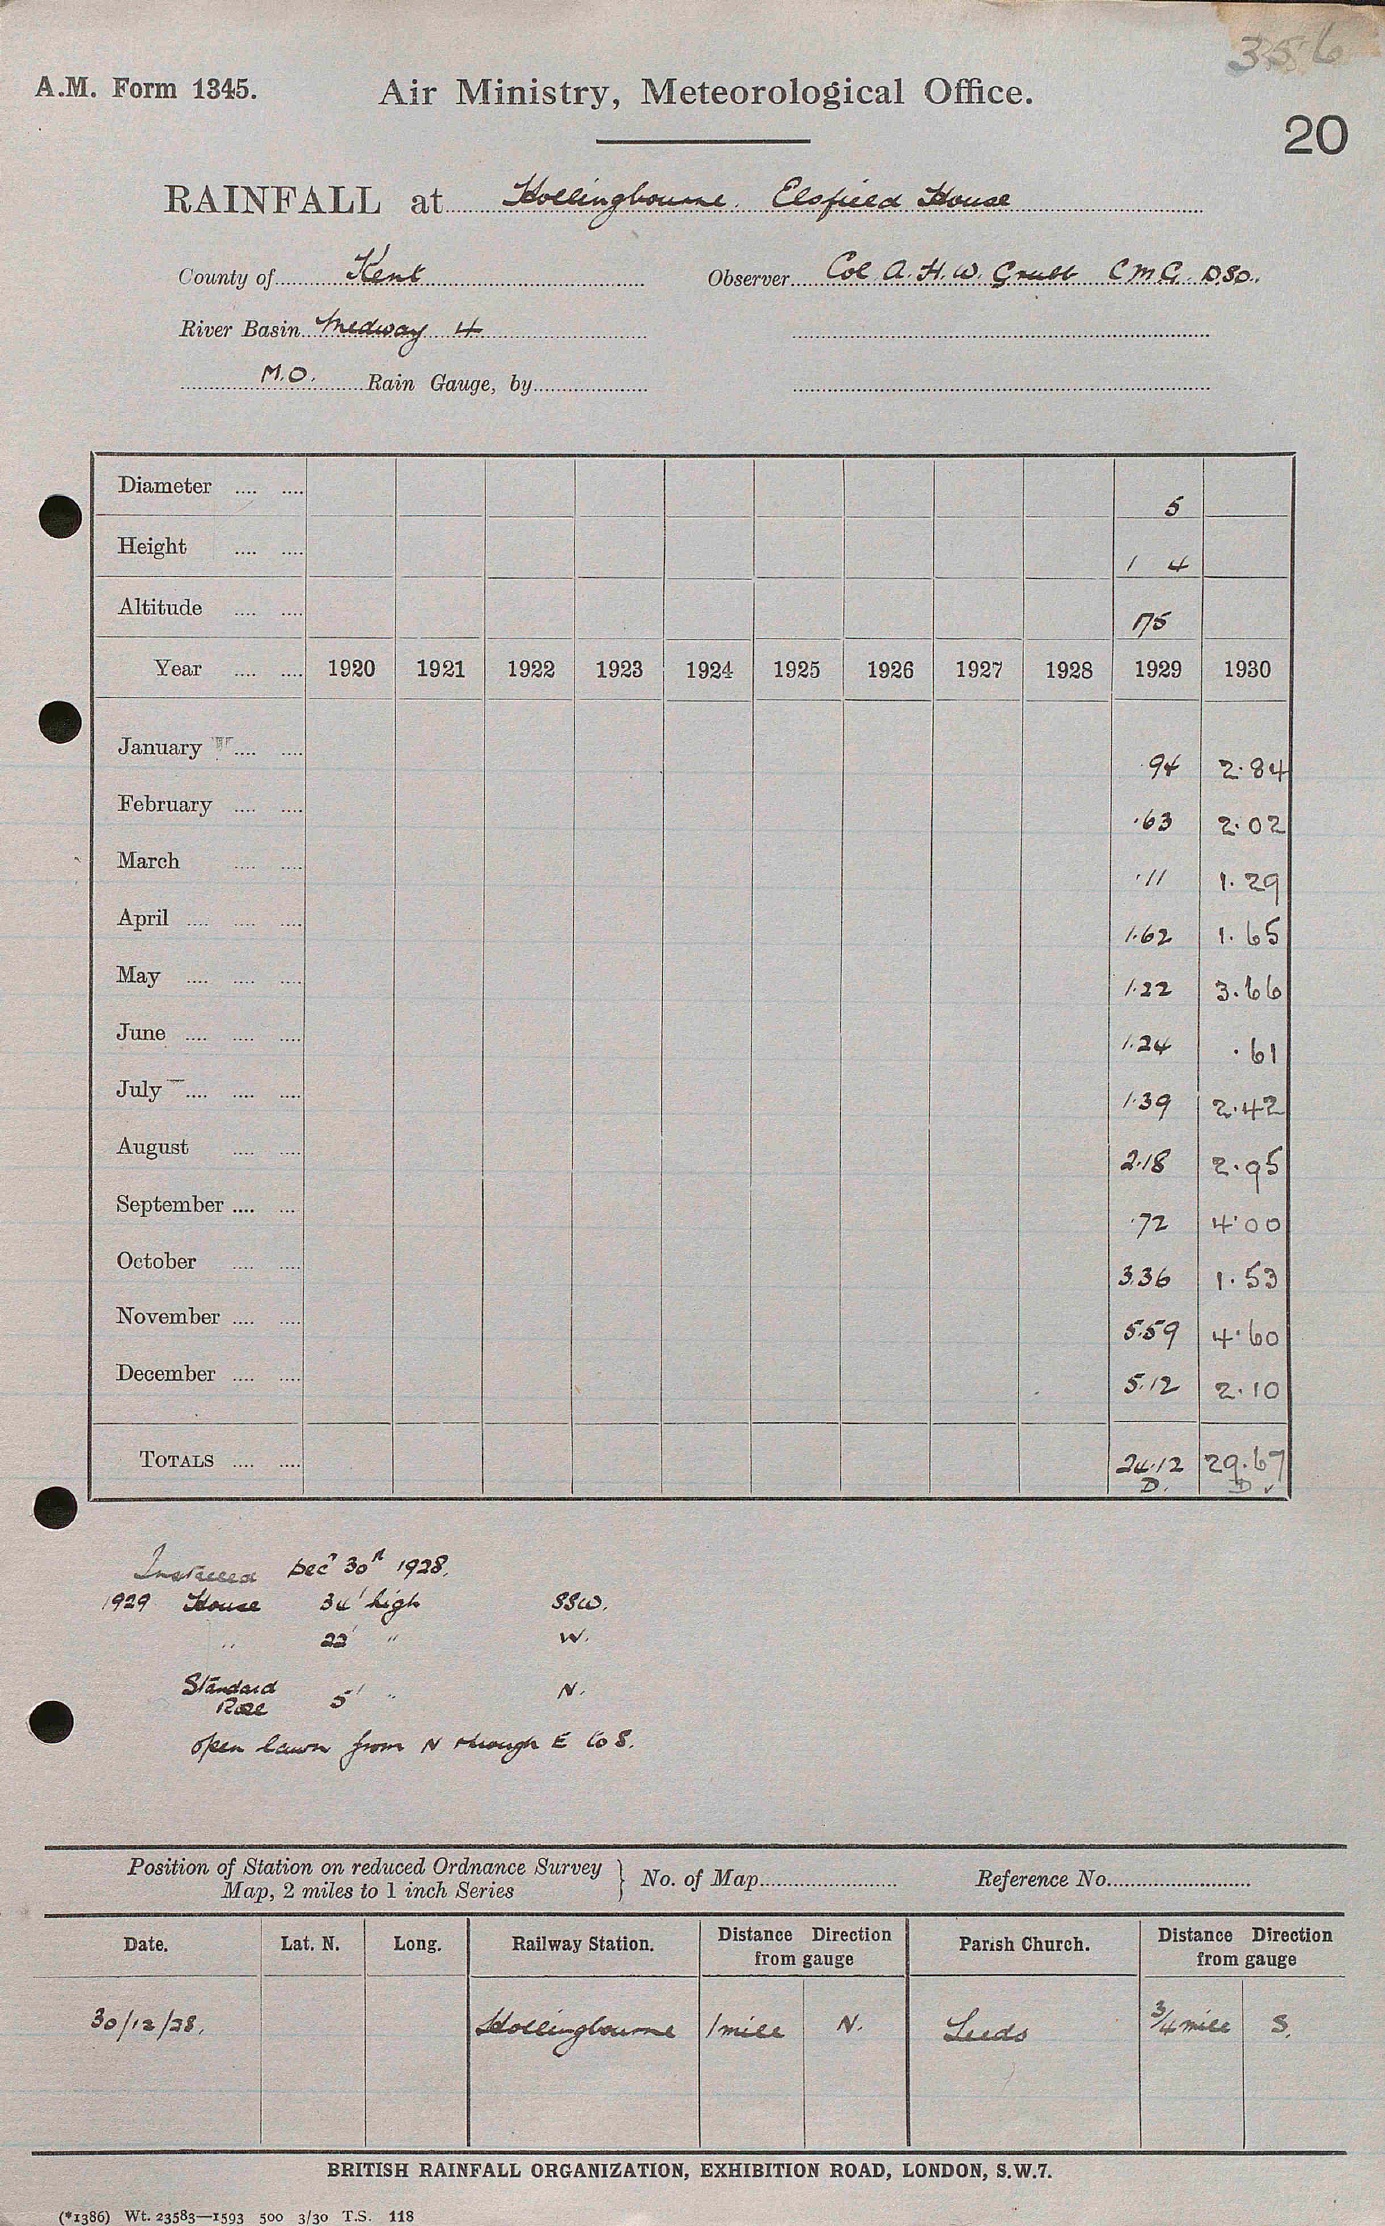 356
A.M. Form 1345. Air Ministry, Meteorological Office.
20
RAINFALL at Hollingbourne. Elsfield House
County of Kent Observer Col A. H. W. Grubb CMG. DSO.
River Basin Medway 4
M.O. Rain Gauge, by
Diameter .... .... 5
Height .... .... 1 4
Altitude .... .... 175
Year .... .... 1920 1921 1922 1923 1924 1925 1926 1927 1928 1929 1930
January .... .... .94 2.84
February .... .... .63 2.02
March .... .... .11 1.29
April .... .... .... 1.62 1.65
May .... .... .... 1.22 3.66
June .... .... .... 1.24 .61
July .... .... .... 1.39 2.42
August .... .... 2.18 2.95
September .... ... .72 4.00
October .... .... 3.36 1.53
November .... .... 5.59 4.60
December .... .... 5.12 2.10
TOTALS .... .... 24.12 29.67
D. D ✓
Installed Decr 30th 1928.
1929 House 34' high SSW.
" 22' " W.
Standard
Rose 5' " N.
open lawn from N through E to S.
Position of Station on reduced Ordnance Survey
Map, 2 miles to 1 inch Series } No. of Map Reference No.
Date. Lat. N. Long. Railway Station. Distance Direction
from gauge Parish Church. Distance Direction
from gauge
30/12/28. Hollingbourne 1 mile N. Leeds 3/4 mile S.
BRITISH RAINFALL ORGANIZATION, EXHIBITION ROAD, LONDON, S.W.7.
(*1386) Wt. 23583—1593 500 3/30 T.S. 118